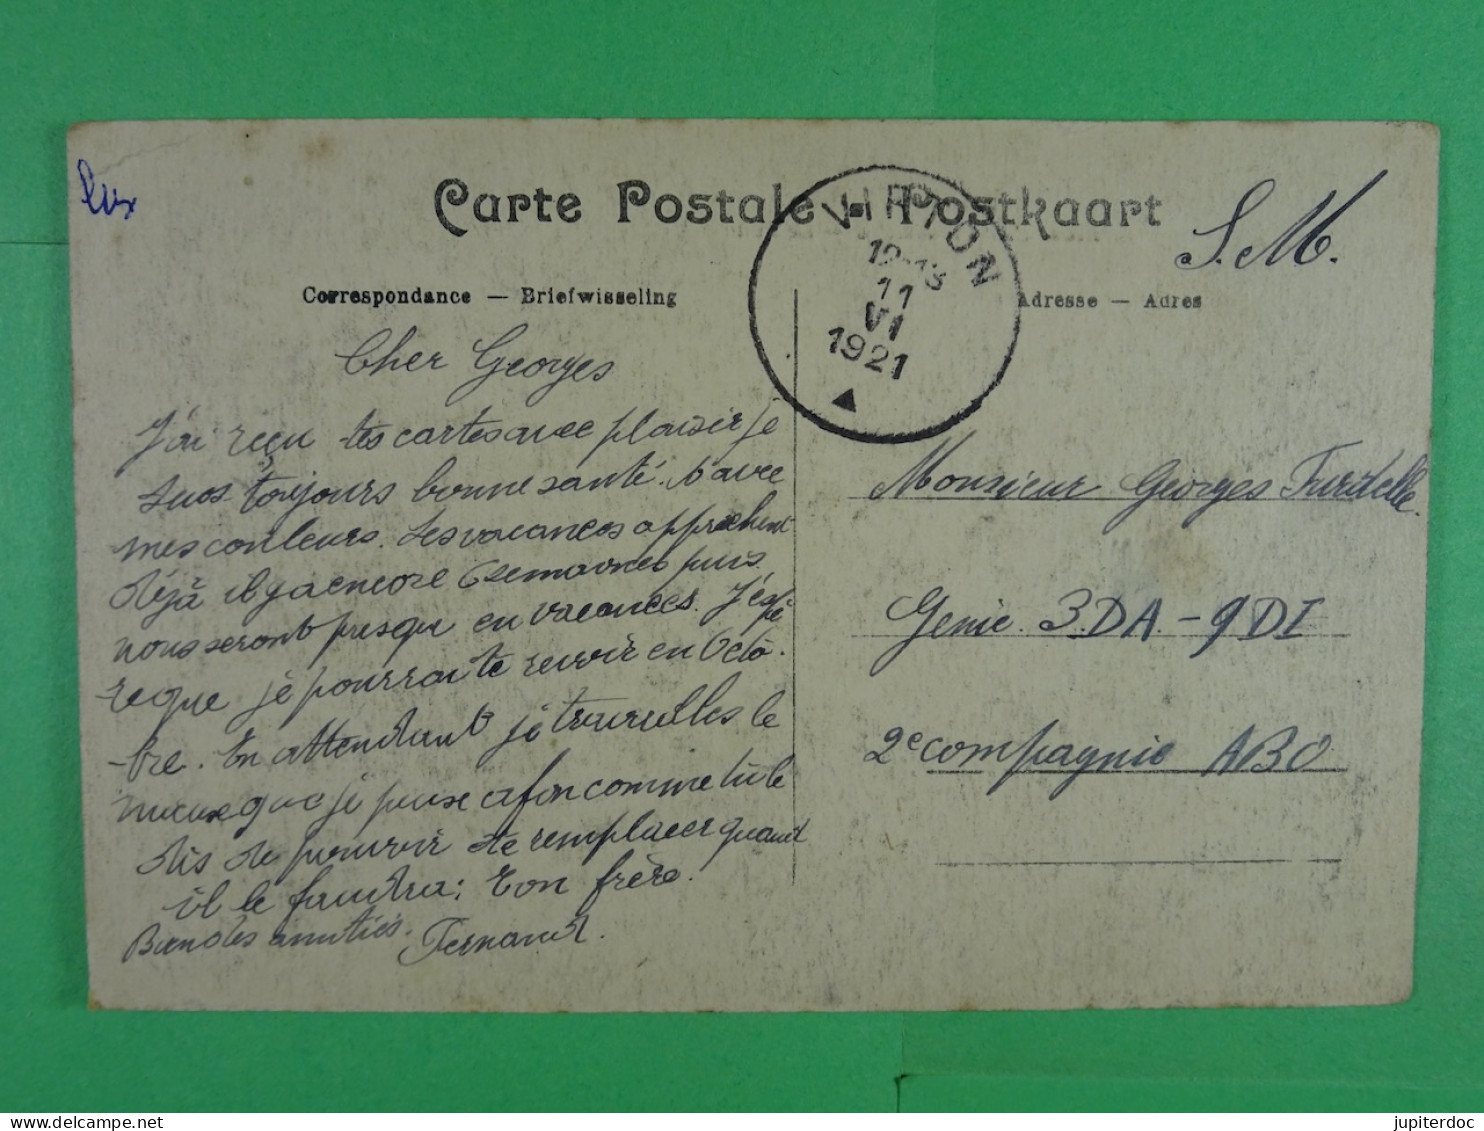 Lux
Carte Postale - Postkaart
S.M.
VIRTON
12-13
11
VI
1921
Correspondance — Briefwisseling
Adresse — Adres
Cher Georges
J'ai reçu tes cartes avec plaisir je
suis toujours bonne santé. avec
mes couleurs. Les vacances approchent
déjà il y a encore 6 semaines puis
nous seront presque en vacances. J'espè-
re que je pourrai te revoir en Octo-
bre. En attendant je travailles le
mieux que je peux afon comme tu le
dis de pouvoir te remplacer quand
il le faudra; ton frère.
Bien des amitiés. Fernand.
Monsieur Georges Turdelle.
Genie. 3.DA. - 9DI
2e compagnie ABO
jupiterdoc
delcampe.net